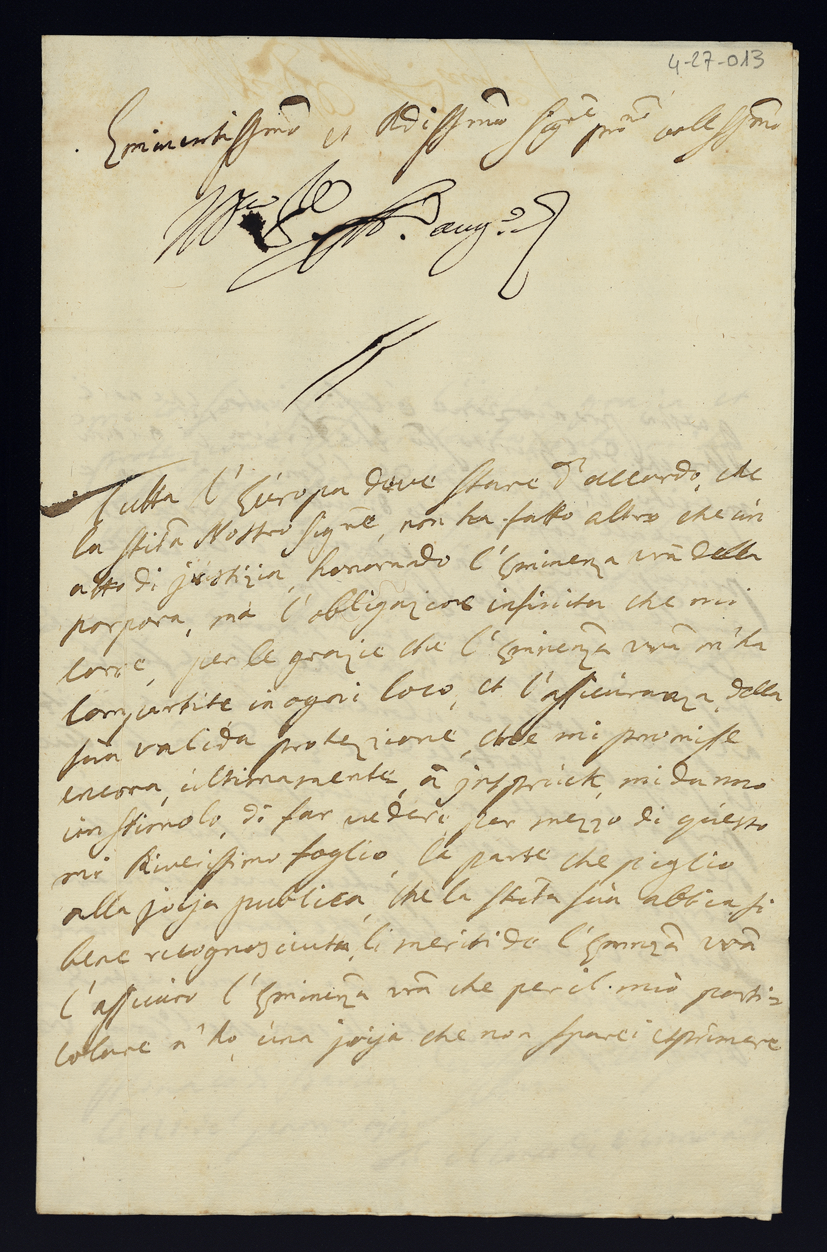 4-27-013
Eminentissmo et Rdissmo Sigre prone collssmo
augo
Tutta l'Europa deve stare d'accordo, che
la Stità Nostro Signre, non ha fatto altro che un
atto di justizia, honorando l'Eminenza vrã della
porpora, ma l'obligazione infinita che mi
corre, per le grazie che l'Eminenzã vrã m'ha
compartite in ogni loco, et l'assicuranza della
sua valida protezione, che mi promisse
encora, ultimamente, à jnsprück, mi danno
un stimolo, di far vedere per mezzo di questo
mi Riverissimo foglio, la parte che piglio
alla joija publica, che la Stità sua abbia si
bene recognosciuta, li meriti de l'Eminzã vrã
l'assicuro l'Eminenzã vrã che per il mio parti=
colare n'ho, una joija che non sparei esprimere